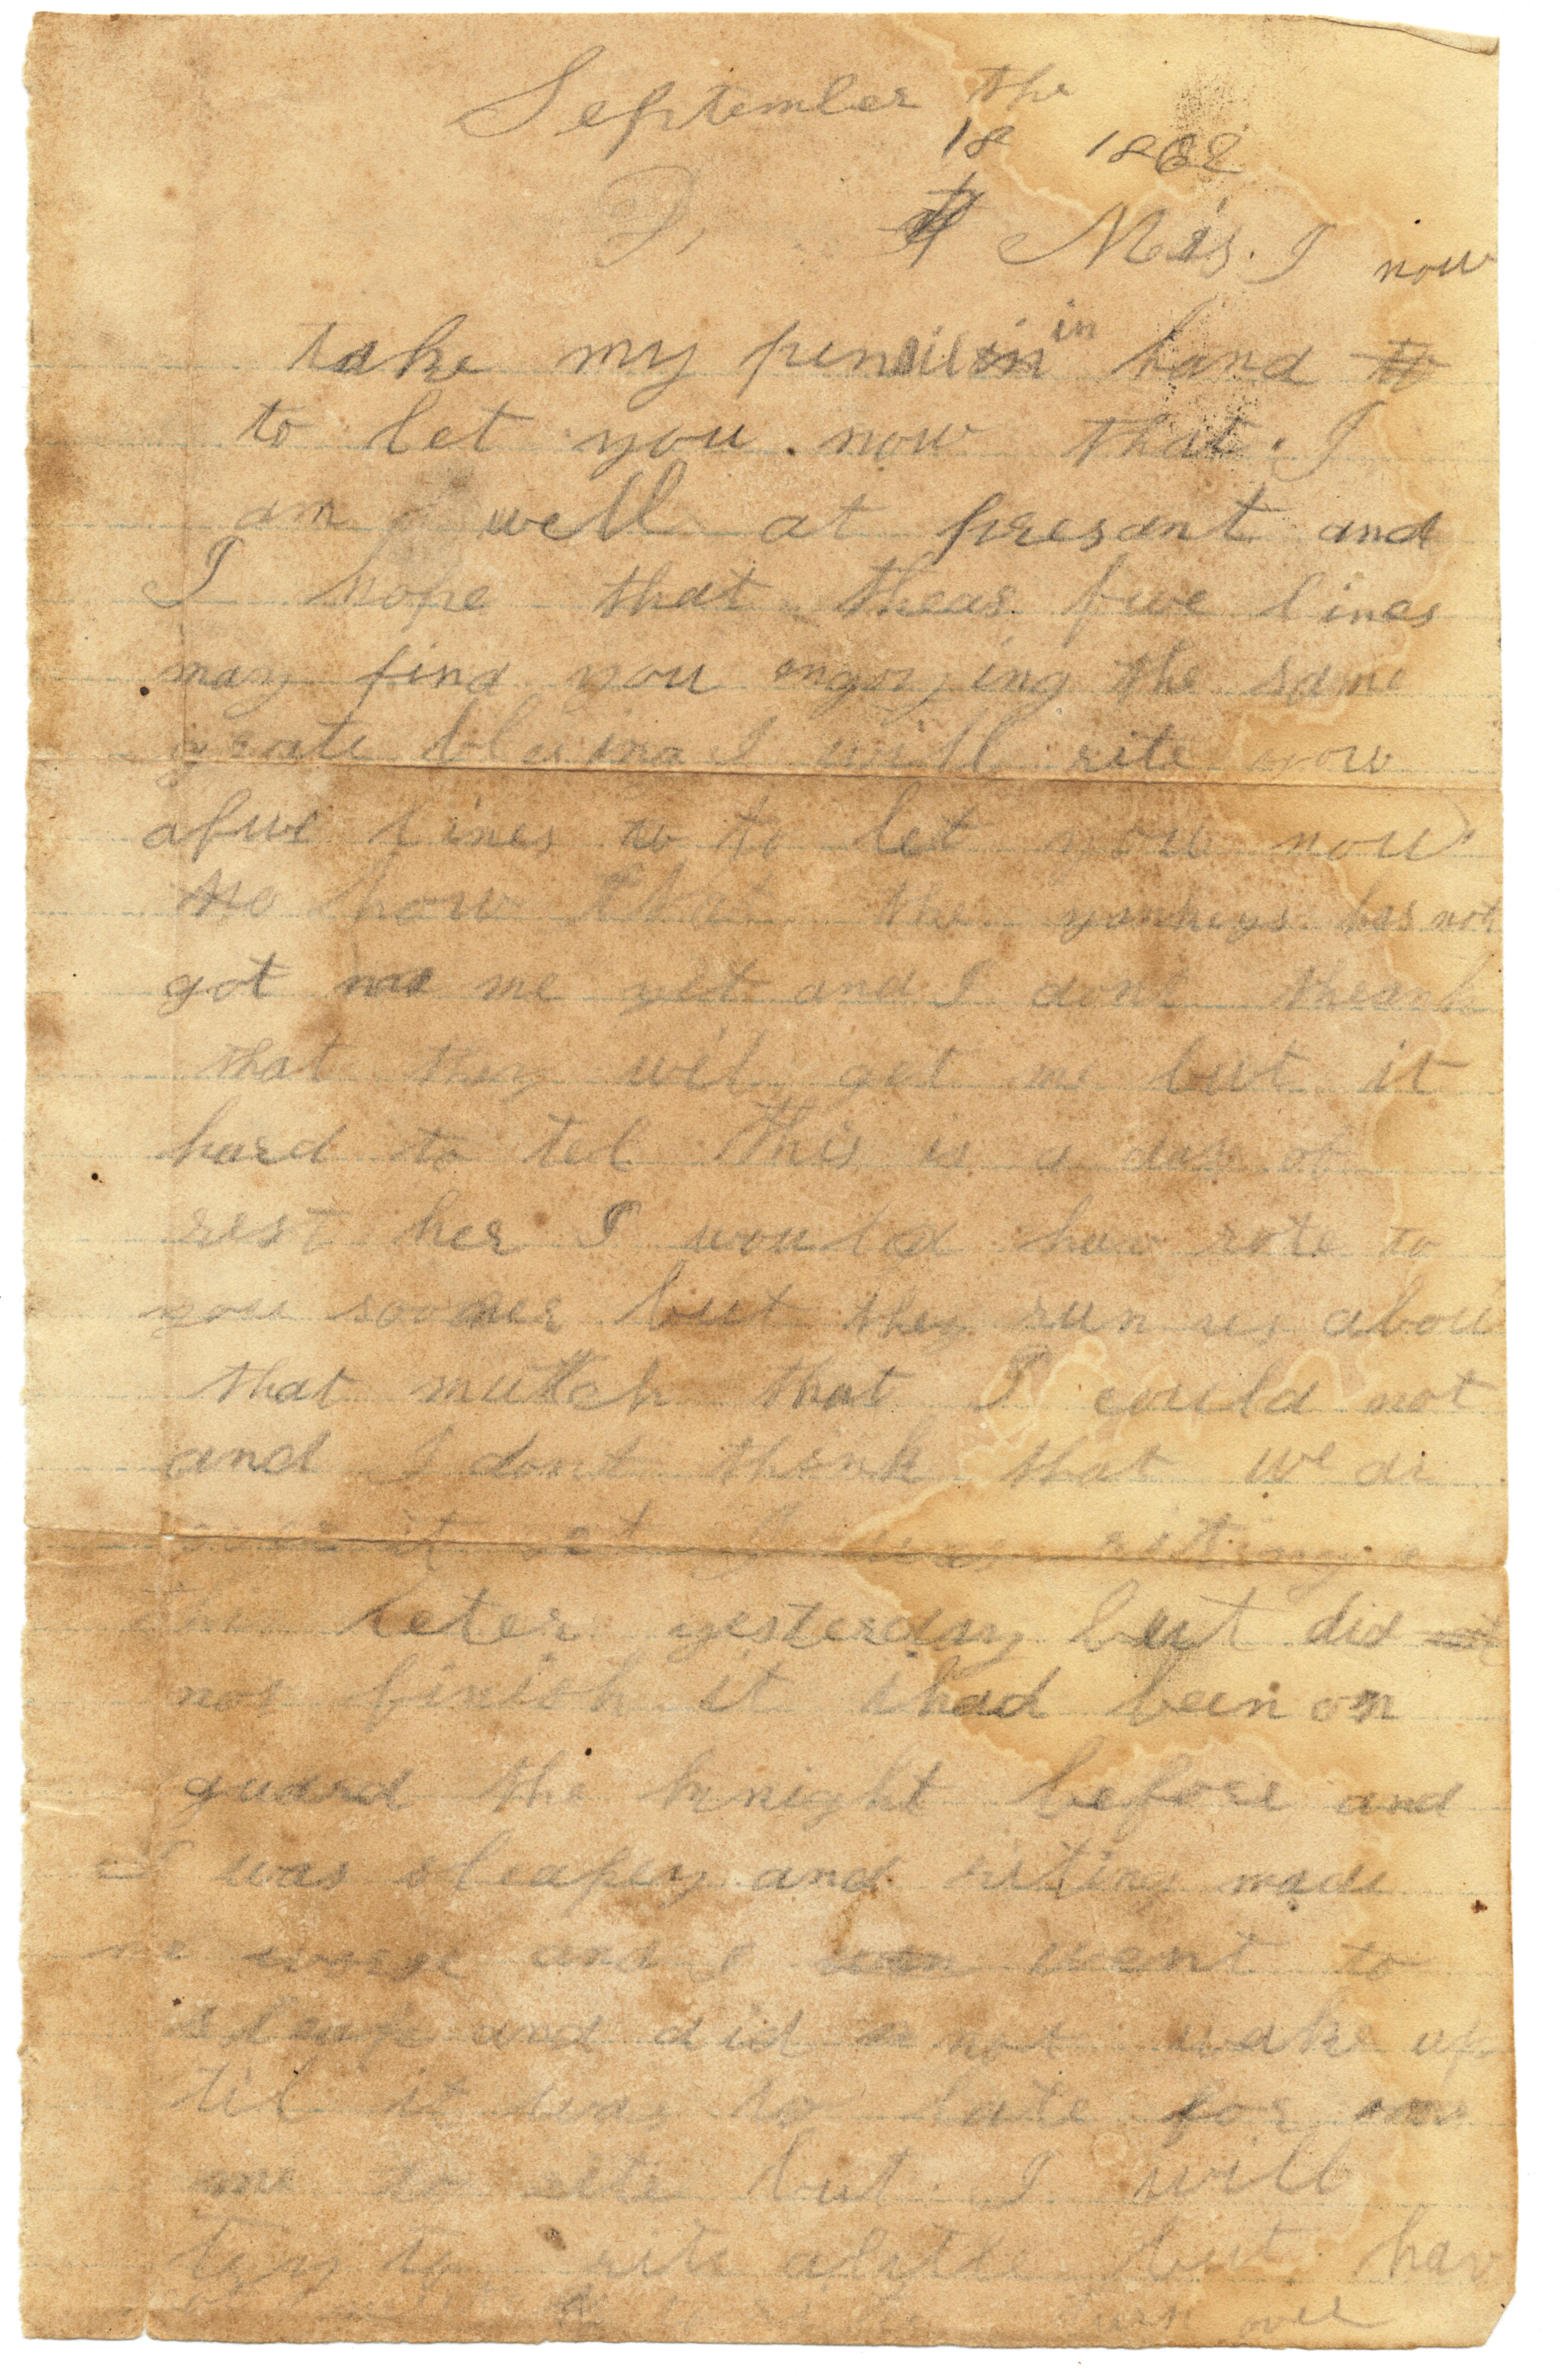 September the
18 1862
Mis. I now
take my pensil in hand to
to let you now that I
am well at presant and
I hope that theas fue lines
may find you ingoying the same
grate blesing I will rite you
afue lines to to let you now
how that the yankeys has not
got me yet and I dont theank
that thay wil get me but it
hard to tel this is a day of
rest her I would hav rote to
you sooner but they run us abou
that mutch that I could not
and I dont think that we ar
it yet I was riting a
leter yesterday but did
not finish it ihad been on
guard the knight before and
I was sleapey and riting made
me worse and I went to
sleap and did not wake up
til it was to late for
me to rite but I will
try to rite alittle but hav
turn over